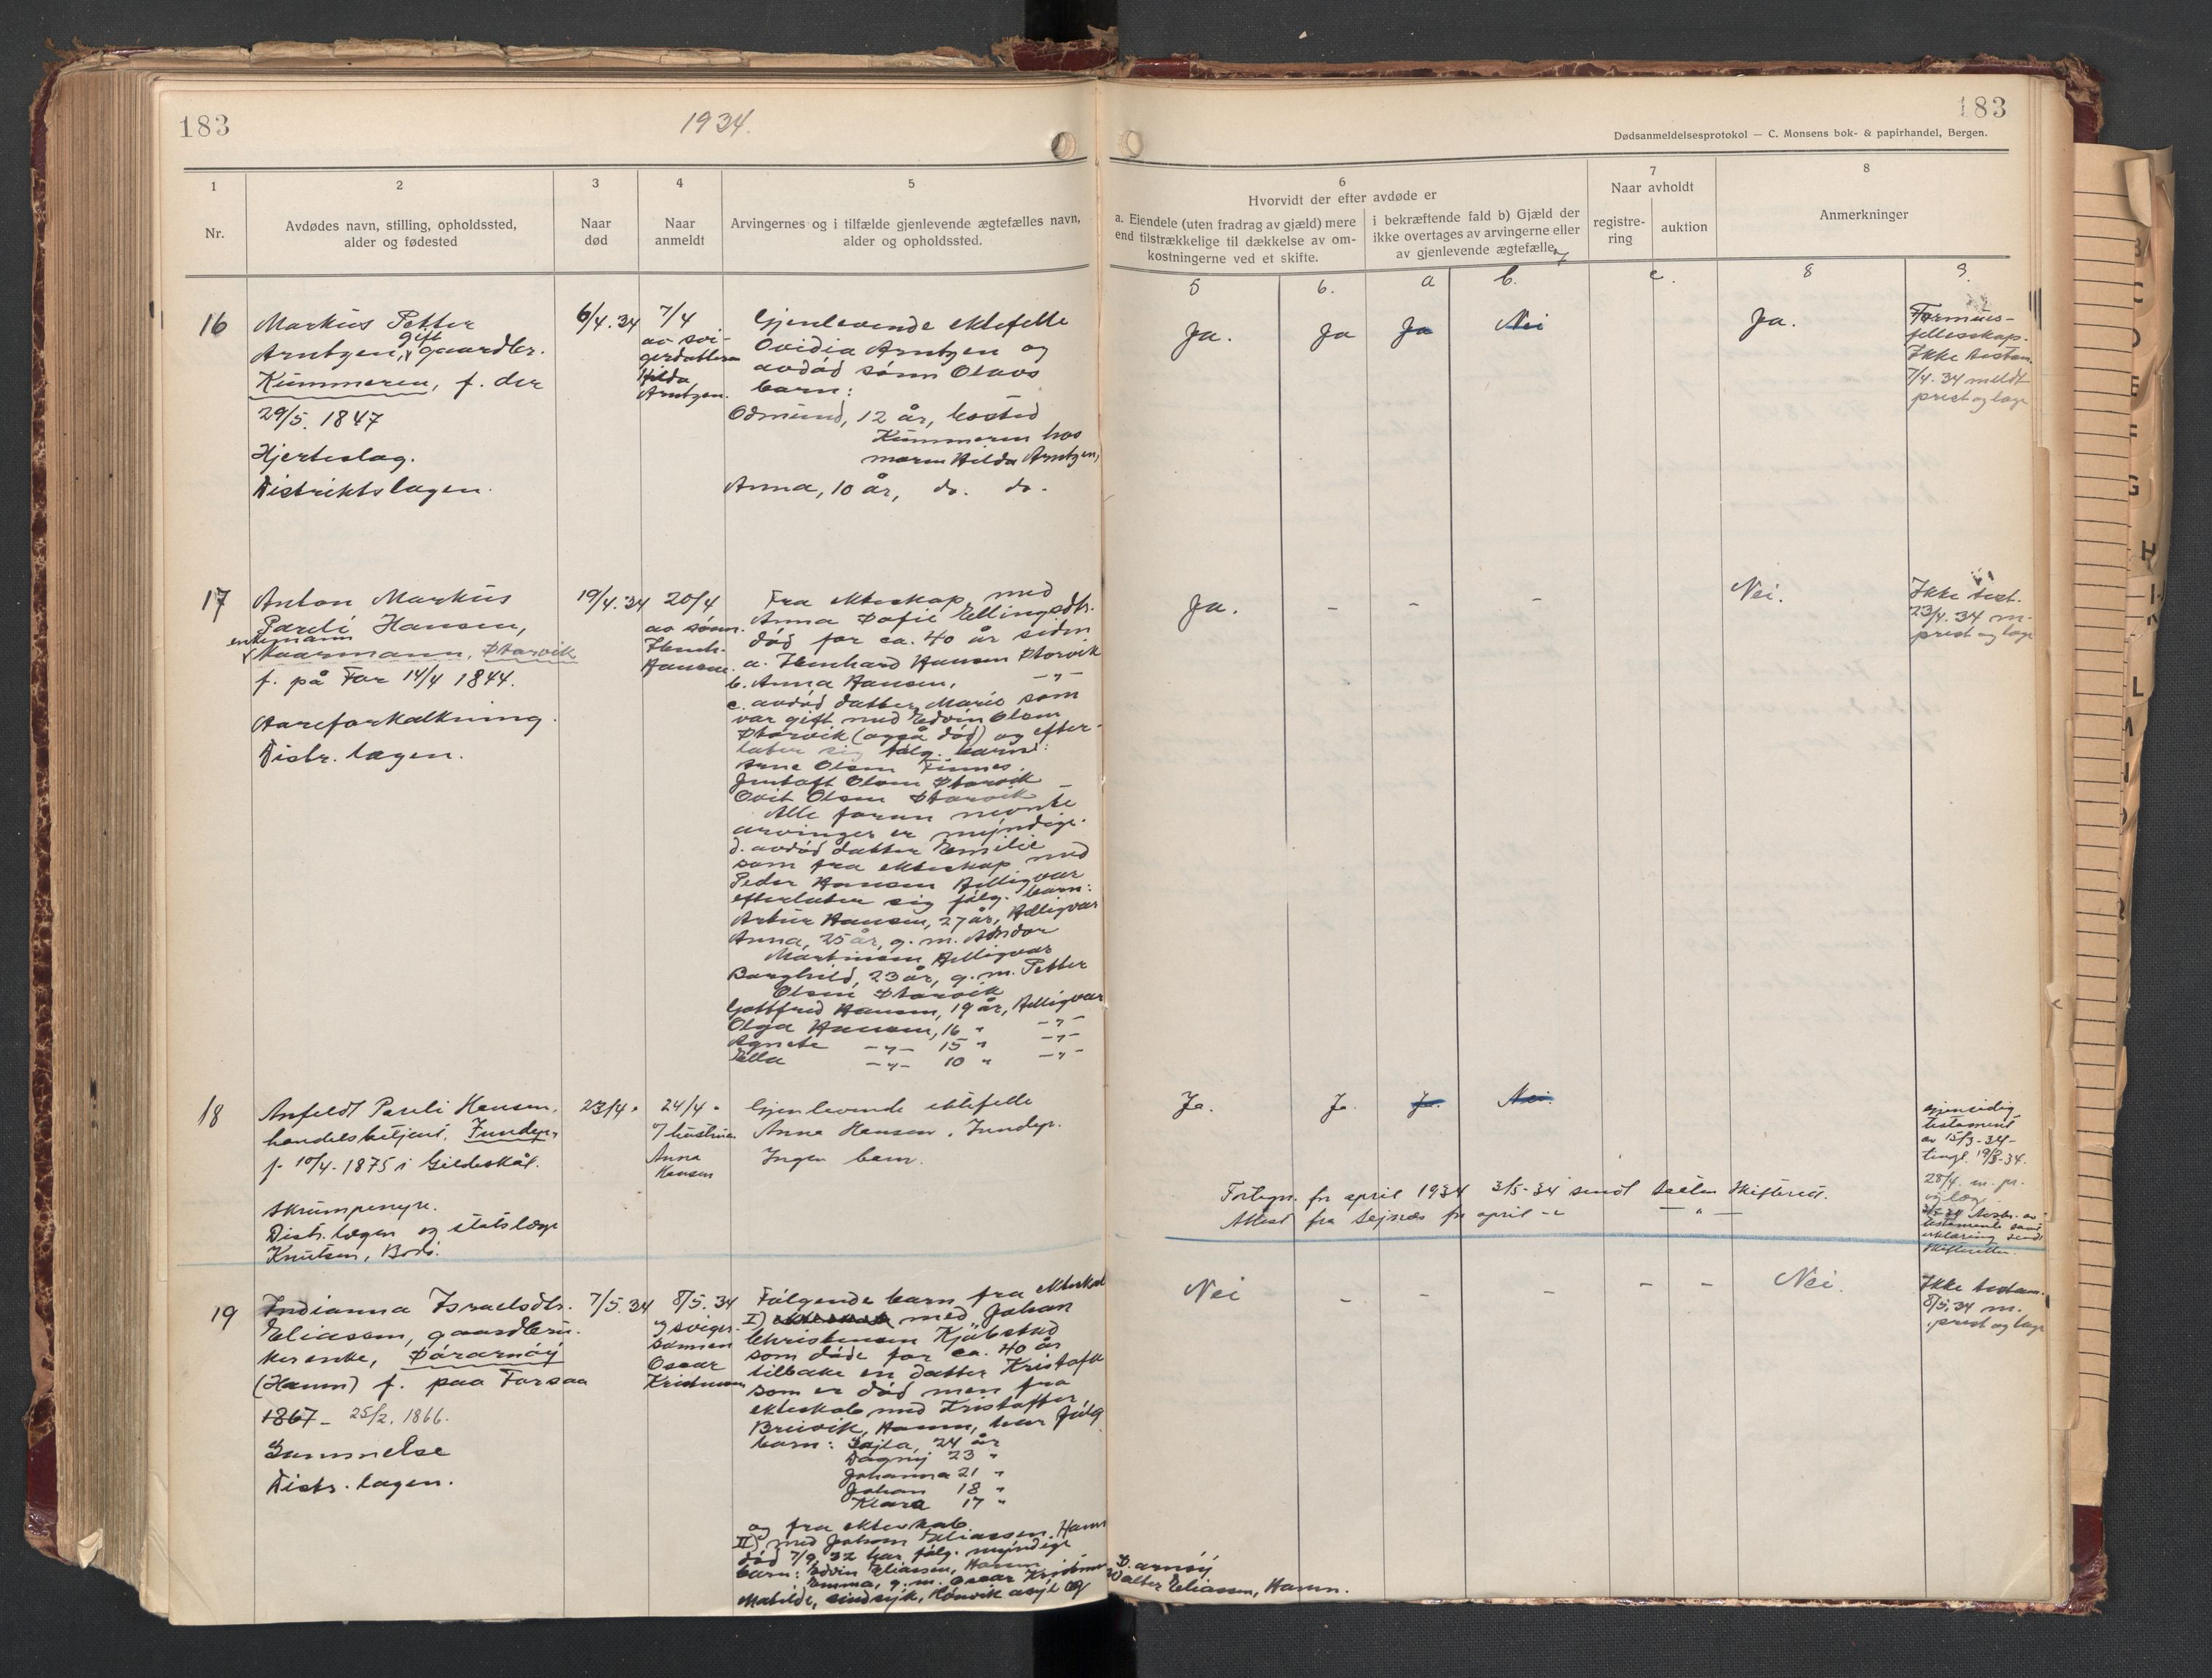 183
1934.
183
Dødsanmeldelsesprotokol — C. Monsens bok- & papirhandel, Bergen.
1
Nr.
2
Avdødes navn, stilling, opholdssted,
alder og fødested
3
Naar
død
4
Naar
anmeldt
5
Arvingernes og i tilfælde gjenlevende ægtefælles navn,
alder og opholdssted.
6
Hvorvidt der efter avdøde er
a. Eiendele (uten fradrag av gjæld) mere
end tilstrækkelige til dækkelse av om-
kostningerne ved et skifte.
i bekræftende fald b) Gjæld der
ikke overtages av arvingerne eller
av gjenlevende ægtefælle
7
Naar avholdt
registre-
ring
auktion
8
Anmerkninger
5
6.
a
b.
c.
8
9.
16
Markus Petter
gift
Arntzen, gaardbr.
Kummeren, f. der
29/5. 1847
Hjerteslag.
Distriktslægen.
6/4. 34
7/4
av svi-
gerdatteren
Hilda
Arntzen.
Gjenlevende ektefelle
Ovidia Arntzen og
avdød sønn Olavs
barn:
Odmund, 12 år, bosted
Kummeren hos
moren Hilda Arntzen,
Anna, 10 år, do. do.
Ja.
Ja
Ja
Nei
Ja.
Formues-
fellesskap.
Ikke testam.
7/4. 34 meldt
prest og læge
17
Anton Markus
Pareli Hansen,
enkemann
Kaarmann, Storvik
f. på For 14/4 1844.
Aareforkalkning.
Distr. lægen.
19/4. 34
20/4
av sønn.
Hansen.
Fra ekteskap med
Anna Sofie Ellingsdtr.
død for ca. 40 år siden
a. Henhard Hansen Storvik
b. Anna Hansen, -"-
c. avdød datter Marie som
var gift med Edvin Olsen
Storvik (også død) og efter-
later sig følg. barn:
Arne Olsen Finnes.
Gustaft Olsen Storvik
Ovit Olsen Storvik
Alle foran nevnte
arvinger er myndige.
d. avdød datter Emilie
som fra ekteskap med
Peder Hansen Helligvær
efterlater sig følg. barn:
Artur Hansen, 27 år, Helligvær
Anna, 25 år, g. m. Andor
Martinsen Helligvær
Borghild, 23 år, g. m. Petter
Olsen Storvik
Gottfred Hansen, 19 år, Helligvær
Olga Hansen, 16 " -"-
Agnete -"- 15 " -"-
Ella -"- 10 " -"-
Ja.
-
-
-
Nei.
Ikke test.
23/4. 34 m.
prest og læge
18
Anfeldt Pareli Hansen,
handelsbetjent, Inndyr,
f. 10/4-1875 i Gildeskål.
Skrumpenyre.
Distr. lægen og statslæge
Knutsen, Bodø.
23/4.
24/4.
v/ hustruen
Anna
Hansen
Gjenlevende ektefelle
Anna Hansen, Inndyr.
Ingen barn.
Ja.
Ja.
Ja.
Nei.
gjensidig
testament
av 15/3-34-
tingl. 19/3-34.
28/4. m. pr.
og læg.
testamente samt
erklæring sendt
skifteretten.
Fortegn. for april 1934 3/5-34 sendt Salten skifterett.
Attest fra Sejnæs for april -"- -"-
19
Indianna Israelsdtr.
Eliassen, gaardbru-
kerenke, Sørarnøy
(Hamn) f. paa Forsaa
1867- 25/2. 1866.
Lammelse
Distr. lægen.
7/5. 34
8/5. 34
v/ sviger-
sønnen
Oscar
Kristensen
Følgende barn fra ekteskab
I) ekteskab med Johan
Christensen Kjøbstad
som døde for ca. 40 år
tilbake en datter Kristafa
som er død men fra
ekteskab med Kristoffer
Breivik, Hamn, har følg.
barn: Lajla, 24 år
Dagny 23 "
Johanna 21 "
Johan 18 "
Klara 17 "
og fra ekteskab
II) med Johan Eliassen, Hamn
død 7/9. 32 har følg. myndige
barn: Edvin Eliassen, Hamn
Emma, g. m. Oscar Kristensen S. arnøy
Matilde, sindsyk, Rønvik asyl og Valter Eliassen, Hamn.
Nei
-
-
-
-
-
Nei.
Ikke testam.
8/5. 34 m.
prest og læge